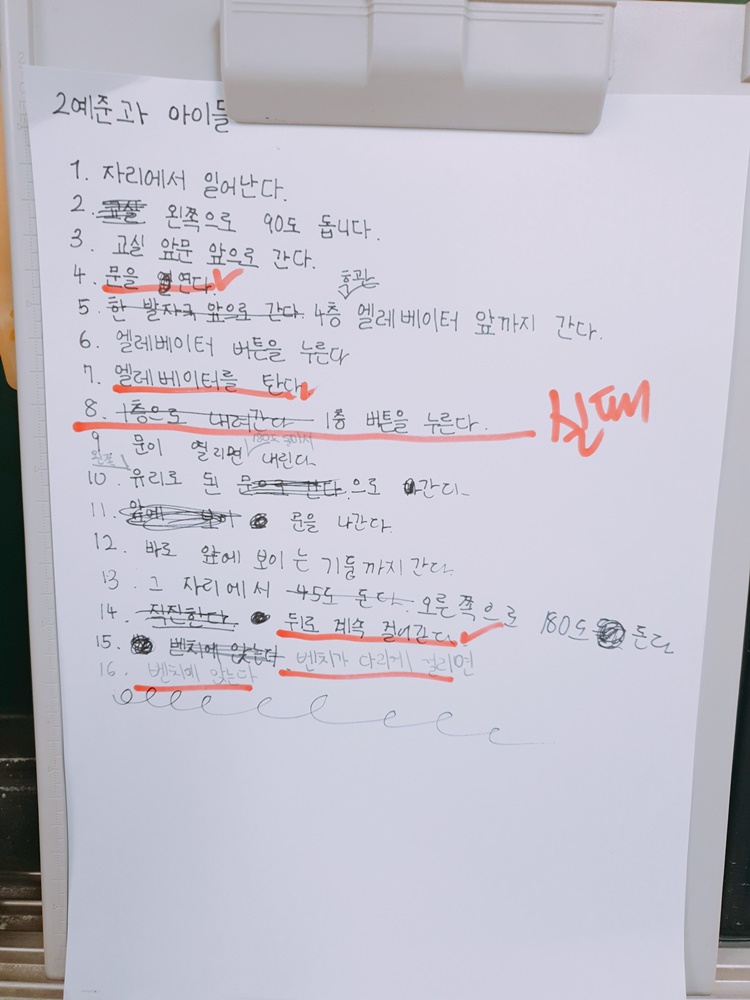 2예준과 아이들
1. 자리에서 일어난다.
2. 교실 왼쪽으로 90도 돕니다.
3. 교실 앞문 앞으로 간다.
4. 문을 연다.
후관
5. 한 발자국 앞으로 간다. 4층 엘레베이터 앞까지 간다.
6. 엘레베이터 버튼을 누른다
7. 엘레베이터를 탄다
8. 1층으로 내려간다 1층 버튼을 누른다.
실패
180도 돌아서
9 문이 열리면 내린다
왼쪽
10. 유리로 된 문으로 간다.으로 간다.
11. 앞에 보이 문을 나간다.
12. 바로 앞에 보이는 기둥까지 간다.
13. 그 자리에서 45도 돈다. 오른쪽으로 180도 돈다
14. 직진한다. 뒤로 계속 걸어간다.
15. 벤치에 앉는다 벤치가 다리에 걸리면
16. 벤치에 앉는다